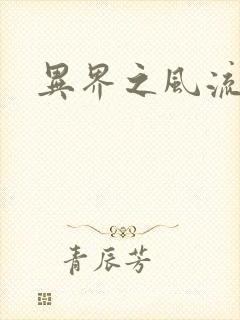 異界之風流
青辰芳